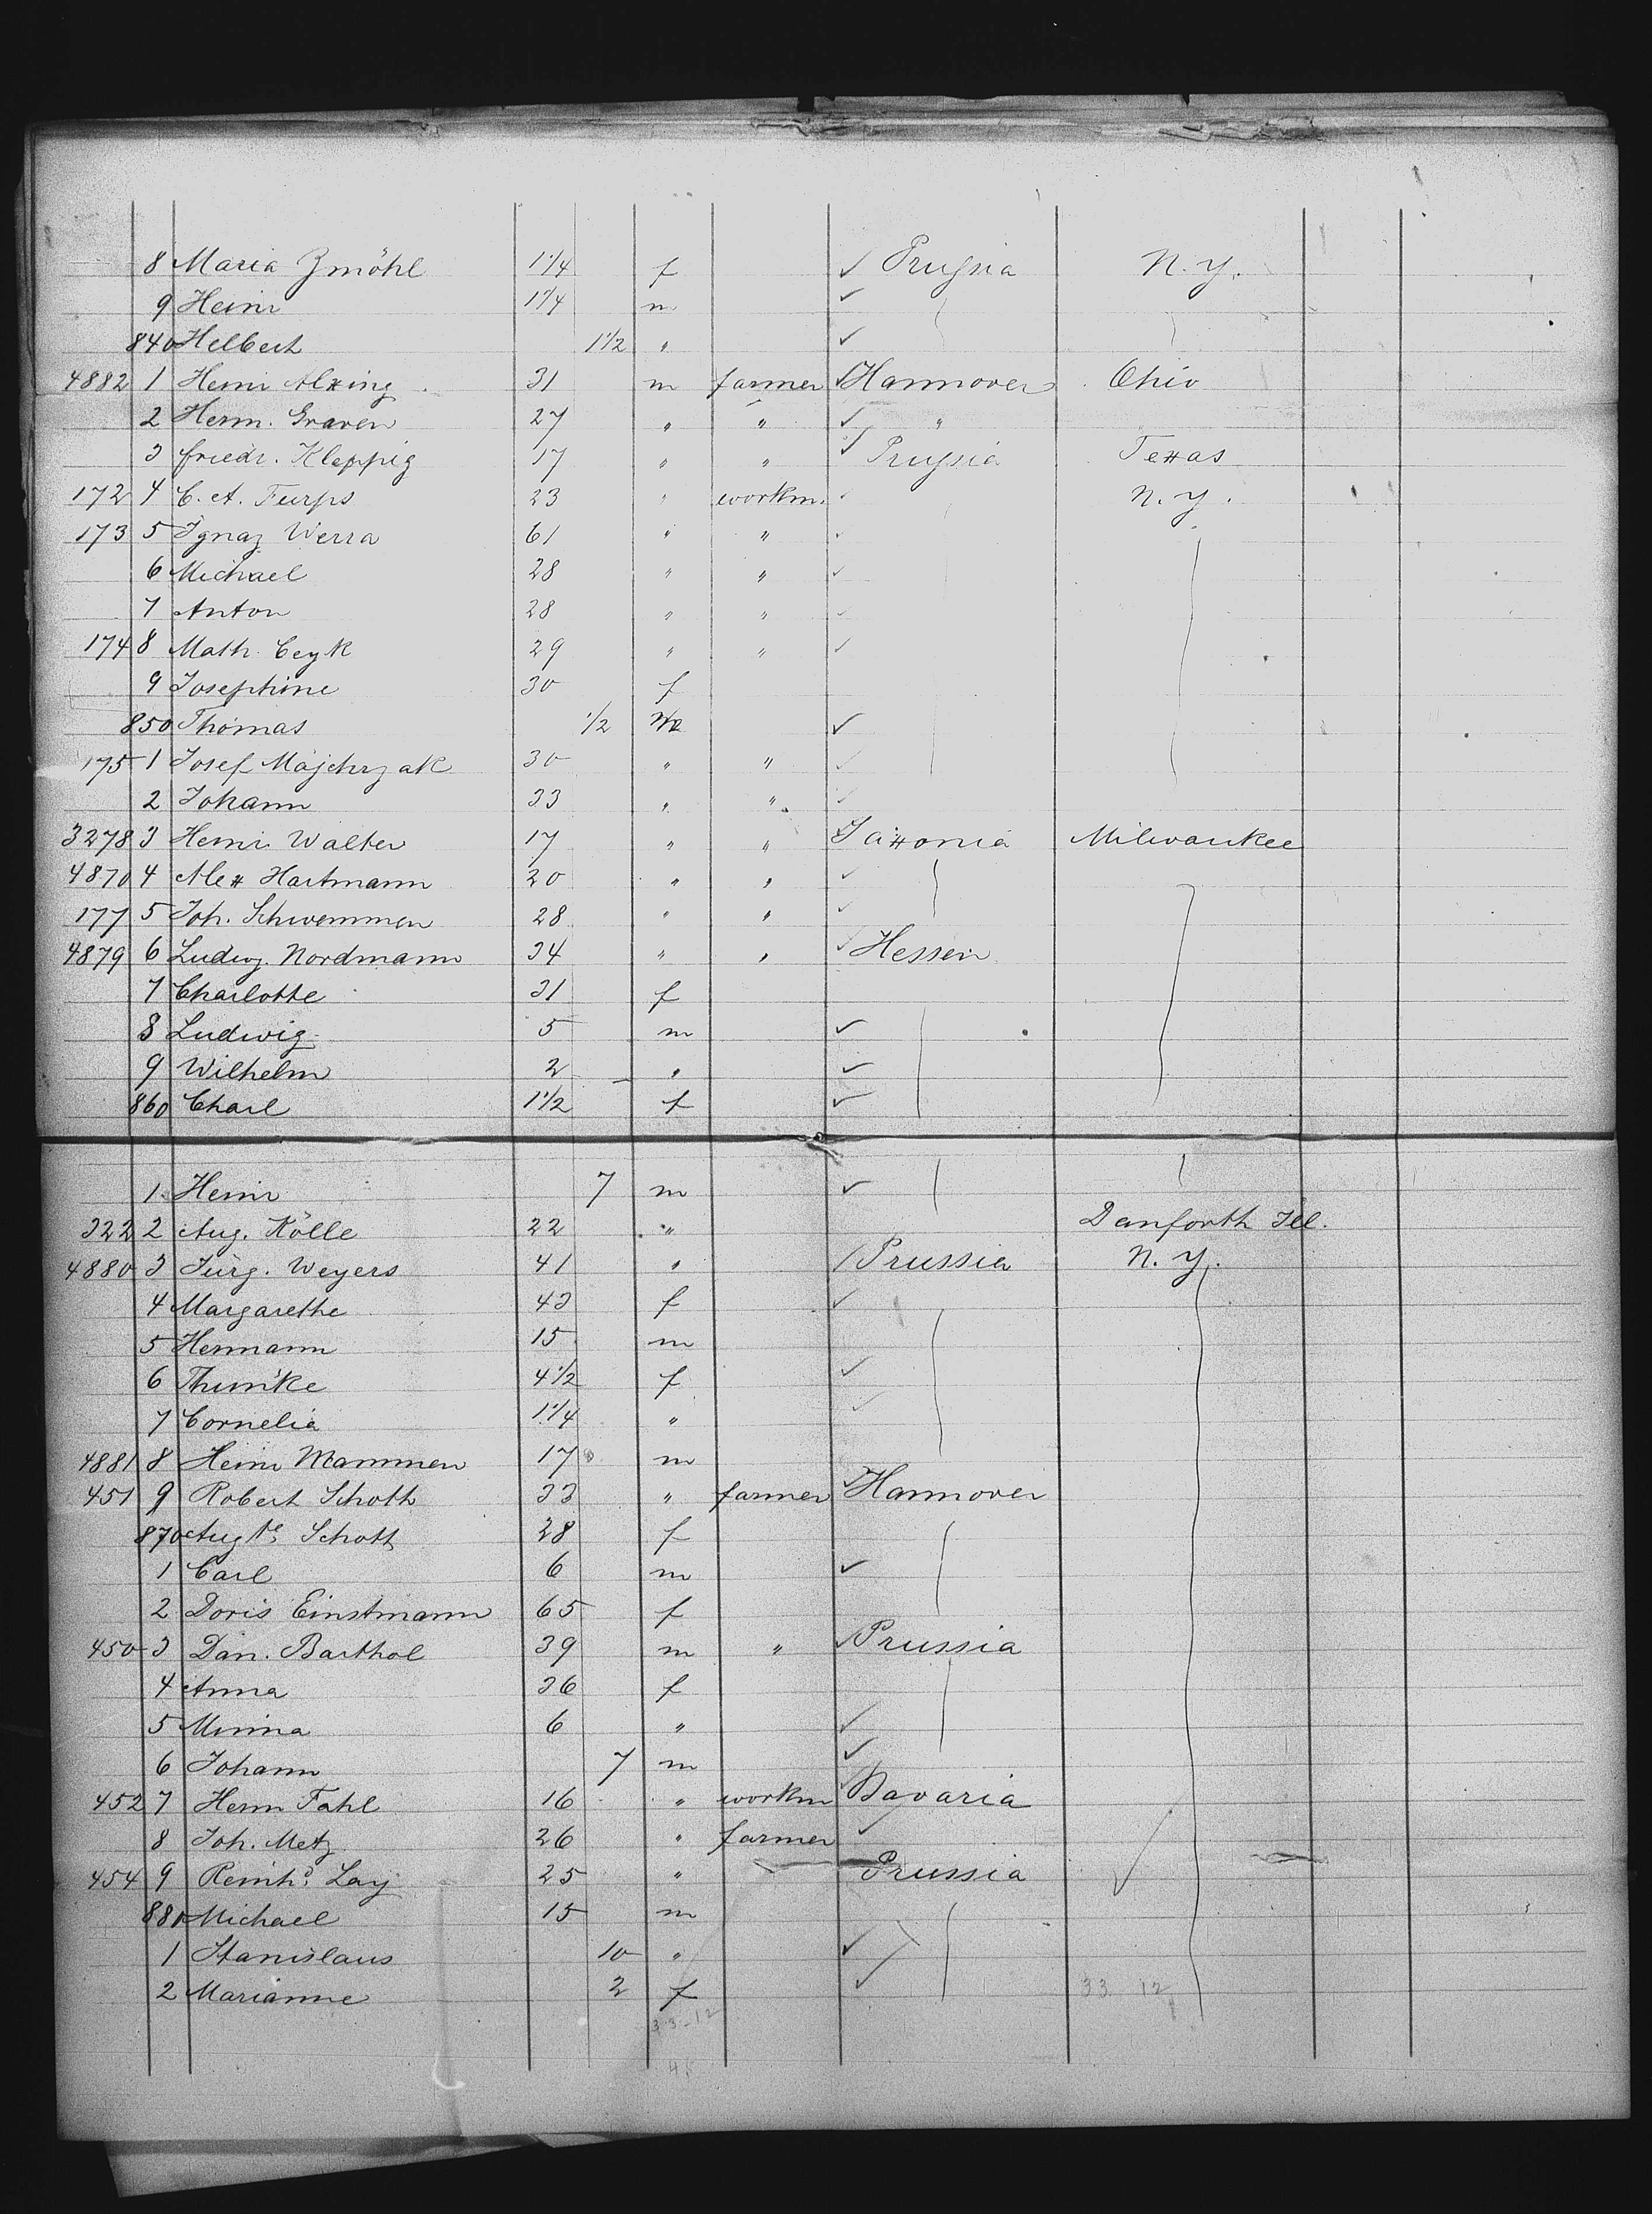 8 Maria Zmöhl 1 1/4 f ✓ Prussia N. Y.
9 Heinr 1 1/4 m ✓
840 Helbert 1 1/2 " ✓
4882 1 Heinr Alxing 31 m farmer ✓ Hannover Ohio
2 Herm. Graven 27 " " ✓ " "
3 Friedr. Kleppig 17 " " ✓ Prussia Texas
172 4 C. A. Furps 23 " workm. ✓ N. Y.
173 5 Ignaz Werra 61 " " ✓
6 Michael 28 " " ✓
7 Anton 28 " " ✓
174 8 Math. Ceyk 29 " " ✓
9 Josephine 30 f
850 Thomas 1/2 m ✓
175 1 Josef Majchrzak 30 " " ✓
2 Johann 33 " " ✓
3278 3 Heinr. Walter 17 " " ✓ Saxonia Milwaukee
4870 4 Alex Hartmann 20 " " ✓
177 5 Joh. Schwemmen 28 " " ✓
4879 6 Ludwg. Nordmann 34 " " ✓ Hessen
7 Charlotte 31 f
8 Ludwig 5 m ✓
9 Wilhelm 2 " ✓
860 Charl 1 1/2 f ✓
1 Heinr 7 m ✓
322 2 Aug. Kölle 22 " Danforth Ill.
4880 3 Jürg. Weyers 41 " ✓ Prussia N. Y.
4 Margarethe 43 f ✓
5 Hermann 15 m
6 4 1/2 f ✓
7 Cornelia 1 1/4 " ✓
4881 8 Heinr Mammen 17 m
451 9 Robert Schott 33 " farmer ✓ Hannover
870 Augte Schott 28 f
1 Carl 6 m ✓
2 Doris Einstmann 65 f
450 3 Dan. Barthol 39 m " ✓ Prussia
4 Anna 36 f
5 Minna 6 " ✓
6 Johann 7 m ✓
452 7 Herm Fahl 16 " workm ✓ Bavaria
8 Joh. Metz 26 " farmer ✓
454 9 Reinhd Lay 25 " Prussia ✓
880 Michael 15 m
1 Stanislaus 10 " ✓
2 Marianne 2 f ✓ 33 12
33-12